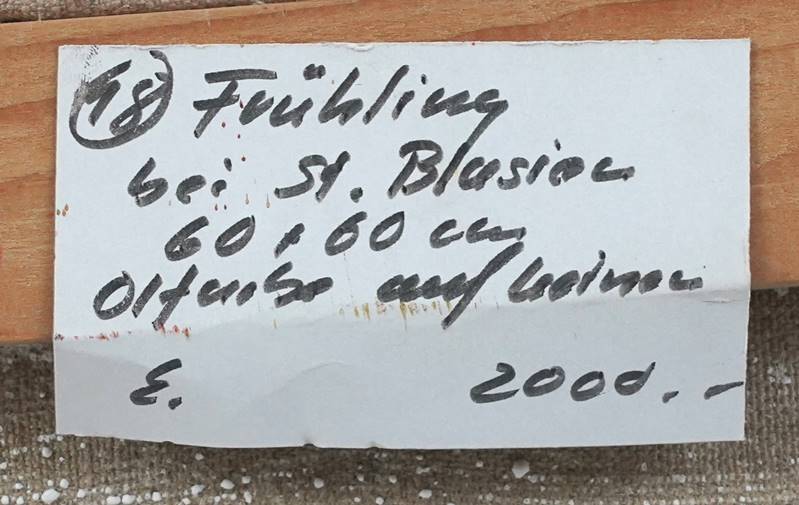 18) Frühling
bei St. Blasien
60 x 60 cm
Ölfarbe auf Leinen
E. 2000.-